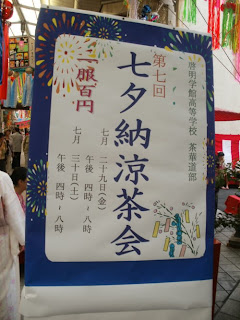 啓明学館高等学校 茶華道部
第七回
七夕納涼茶会
一服百円
七月 二十九日(金)
午後 四時~八時
七月 三十日(土)
午後 四時~八時